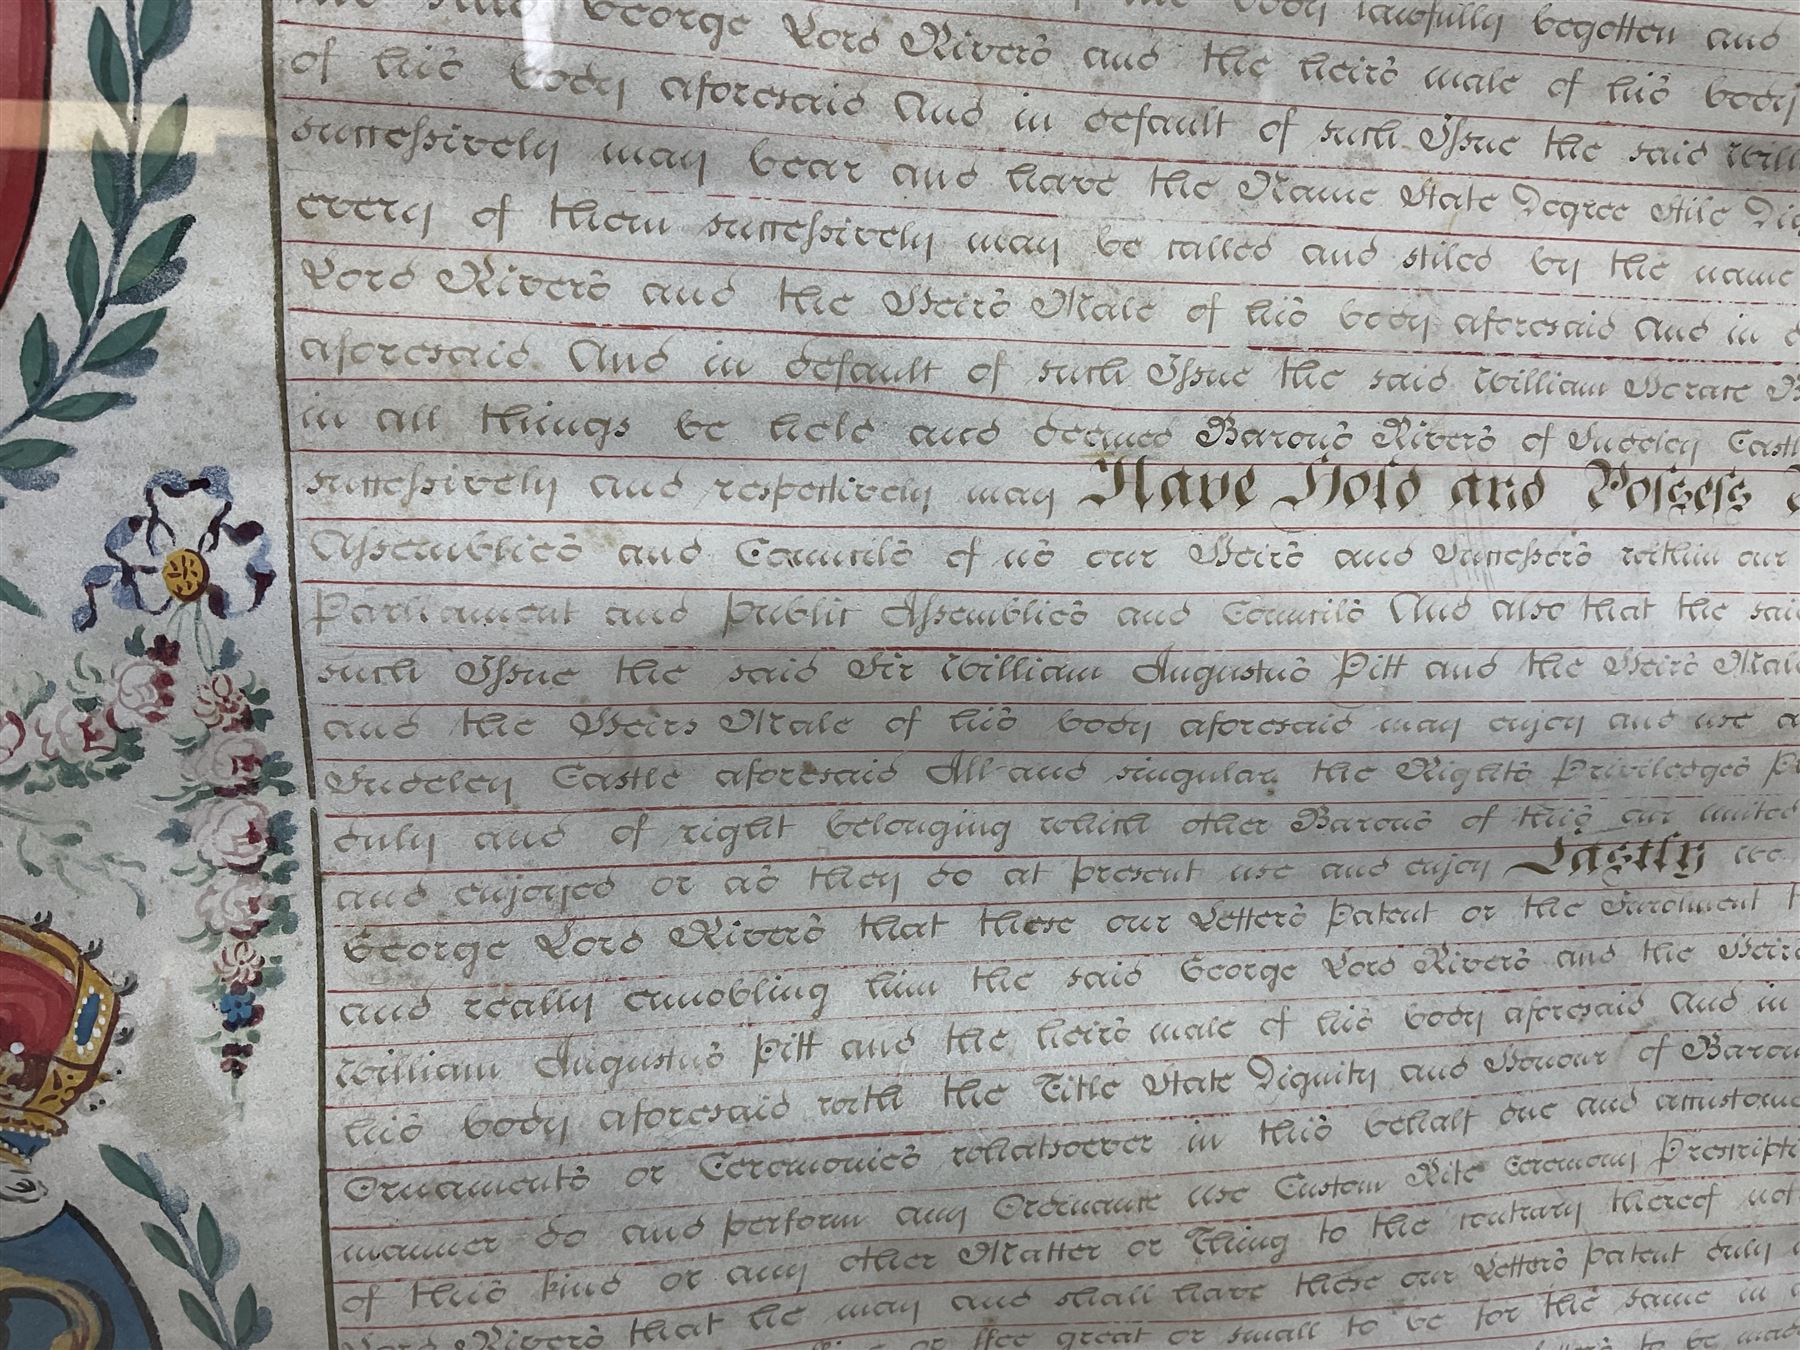 the said George Lord Rivers and the heirs male of his body lawfully begotten and
of his body aforesaid And in default of such Issue the said
successively may bear and have the Name State Degree Stile
every of them successively may be called and stiled by the name
Lord Rivers and the Heirs Male of his body aforesaid and in
aforesaid And in default of such Issue the said William Horace
in all things be held and deemed Barons Rivers of Sudeley Castle
successively and respectively may Have Hold and Possess
Assemblies and Councils of us our Heirs and Successors within our
Parliament and public Assemblies and Councils And also that the said
such Issue the said Sir William Augustus Pitt and the Heirs Male
and the Heirs Male of his body aforesaid may enjoy and use
Sudeley Castle aforesaid All and singular the Rights Priviledges
duly and of right belonging which other Barons of this our united
and enjoyed or as they do at present use and enjoy Lastly we
George Lord Rivers that these our Letters Patent or the Inrolment
and really ennobling him the said George Lord Rivers and the Heirs
William Augustus Pitt and the heirs male of his body aforesaid And in
his body aforesaid with the Title State Dignity and Honour of Baron
Ornaments or Ceremonies whatsoever in this behalf due and accustomed
manner do and perform any Ordenance use Custom Rite Ceremony
of this kind or any other Matter or Thing to the contrary thereof
Lord Rivers that he may and shall have these our Letters Patent duly
or ffee great or small to be for the same in
to be made